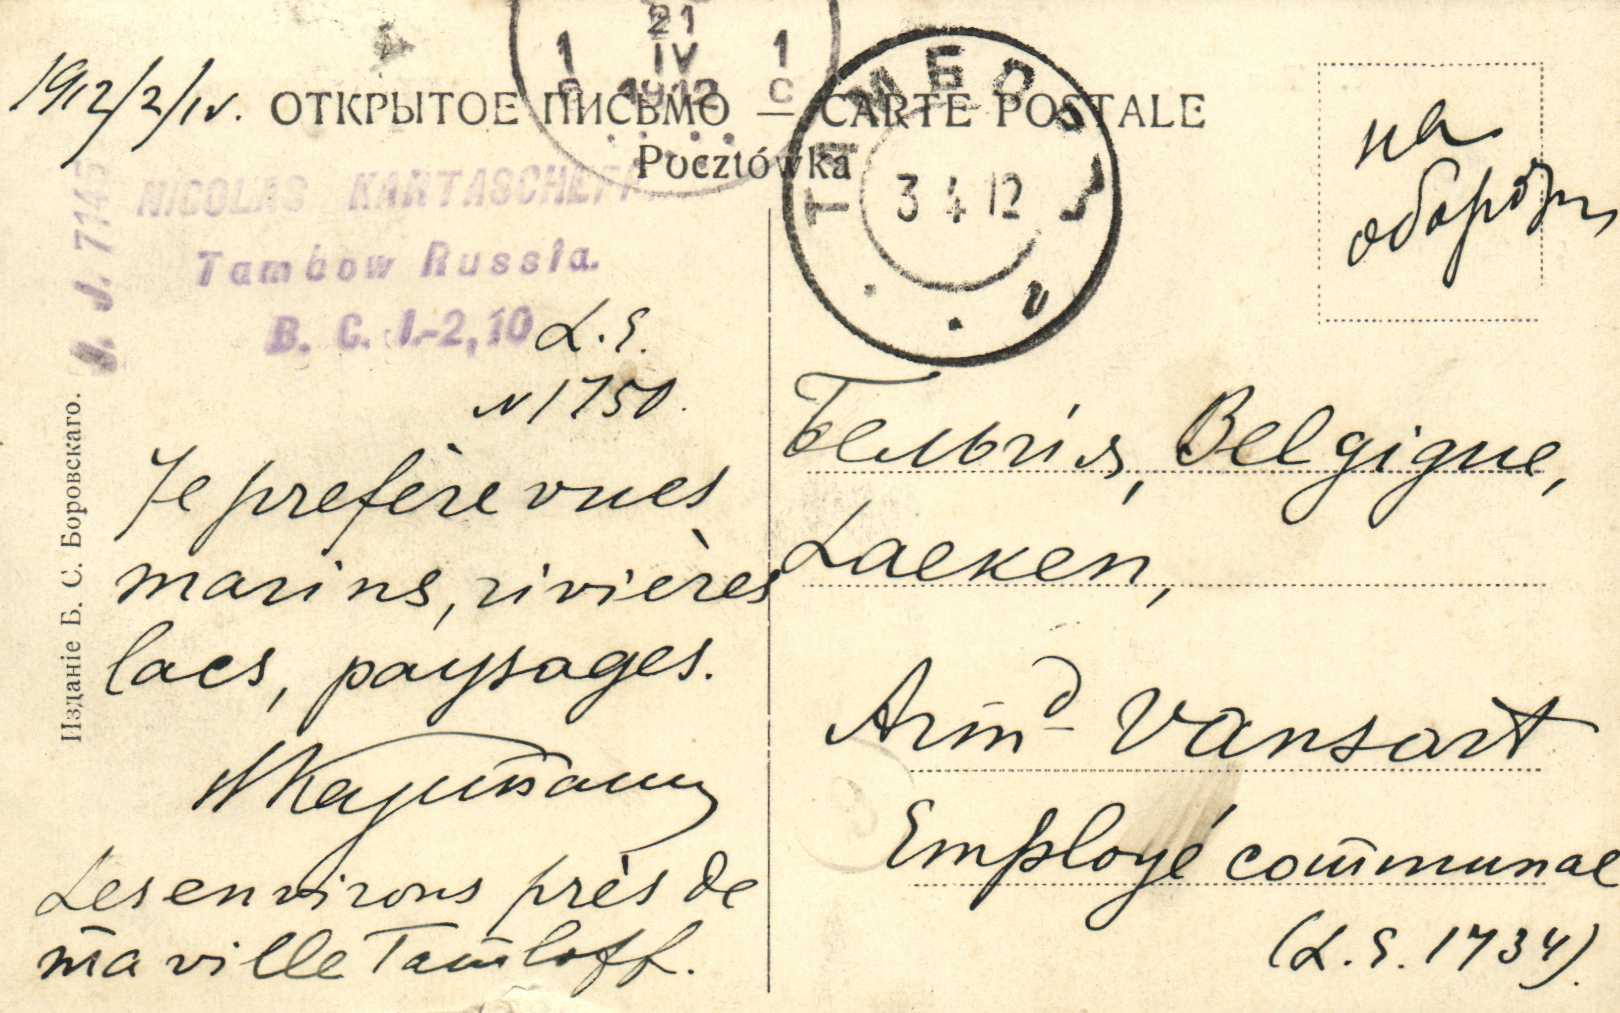 1912/2/IV.
ОТКРЫТОЕ ПИСЬМО — CARTE POSTALE
Pocztówka
21
1 IV 1
1912 С
ТАМБОВЪ
3 4 12
на
NICOLAS KARTASCHEFF
Tambow Russia.
B. C. I.-2,10
J. J. 7145
L. S.
N 1750.
Je prefère vues
marins, rivières
lacs, paysages.
Les environs près de
ma ville Tamboff.
Бельгія, Belgique,
Laeken,
Armd Vansart
Employé communal
(L. S. 1734).
Изданіе Б. С. Боровскаго.